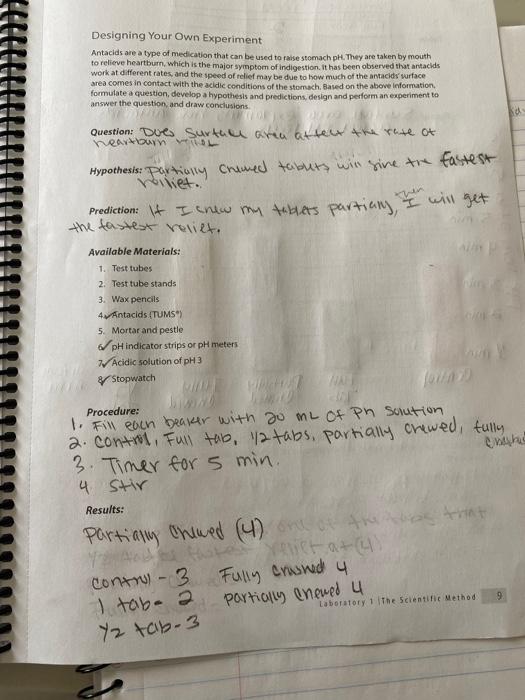 Designing Your Own Experiment
Antacids are a type of medication that can be used to raise stomach pH. They are taken by mouth
to relieve heartburn, which is the major symptom of indigestion. It has been observed that antacids
work at different rates, and the speed of relief may be due to how much of the antacids' surface
area comes in contact with the acidic conditions of the stomach. Based on the above information,
formulate a question, develop a hypothesis and predictions, design and perform an experiment to
answer the question, and draw conclusions.
Question: Does Surface area affect the rate of
heartburn relief
Hypothesis: Partially chewed tablets will give the fastest
relief.
Prediction: If I chew my tablets partially, then I will get
the fastest relief.
Available Materials:
1. Test tubes
2. Test tube stands
3. Wax pencils
4. Antacids (TUMS®)
5. Mortar and pestle
6. pH indicator strips or pH meters
7. Acidic solution of pH 3
8. Stopwatch
Procedure:
1. Fill each beaker with 20 mL of Ph Solution
2. Control, Full tab, 1/2 tabs, partially chewed, fully
3. Timer for 5 min.
4 Stir
Results:
Partially chewed (4)
control - 3 Fully crushed 4
1 tab - 2 partially chewed 4
1/2 tab - 3
Laboratory 1 | The Scientific Method 9